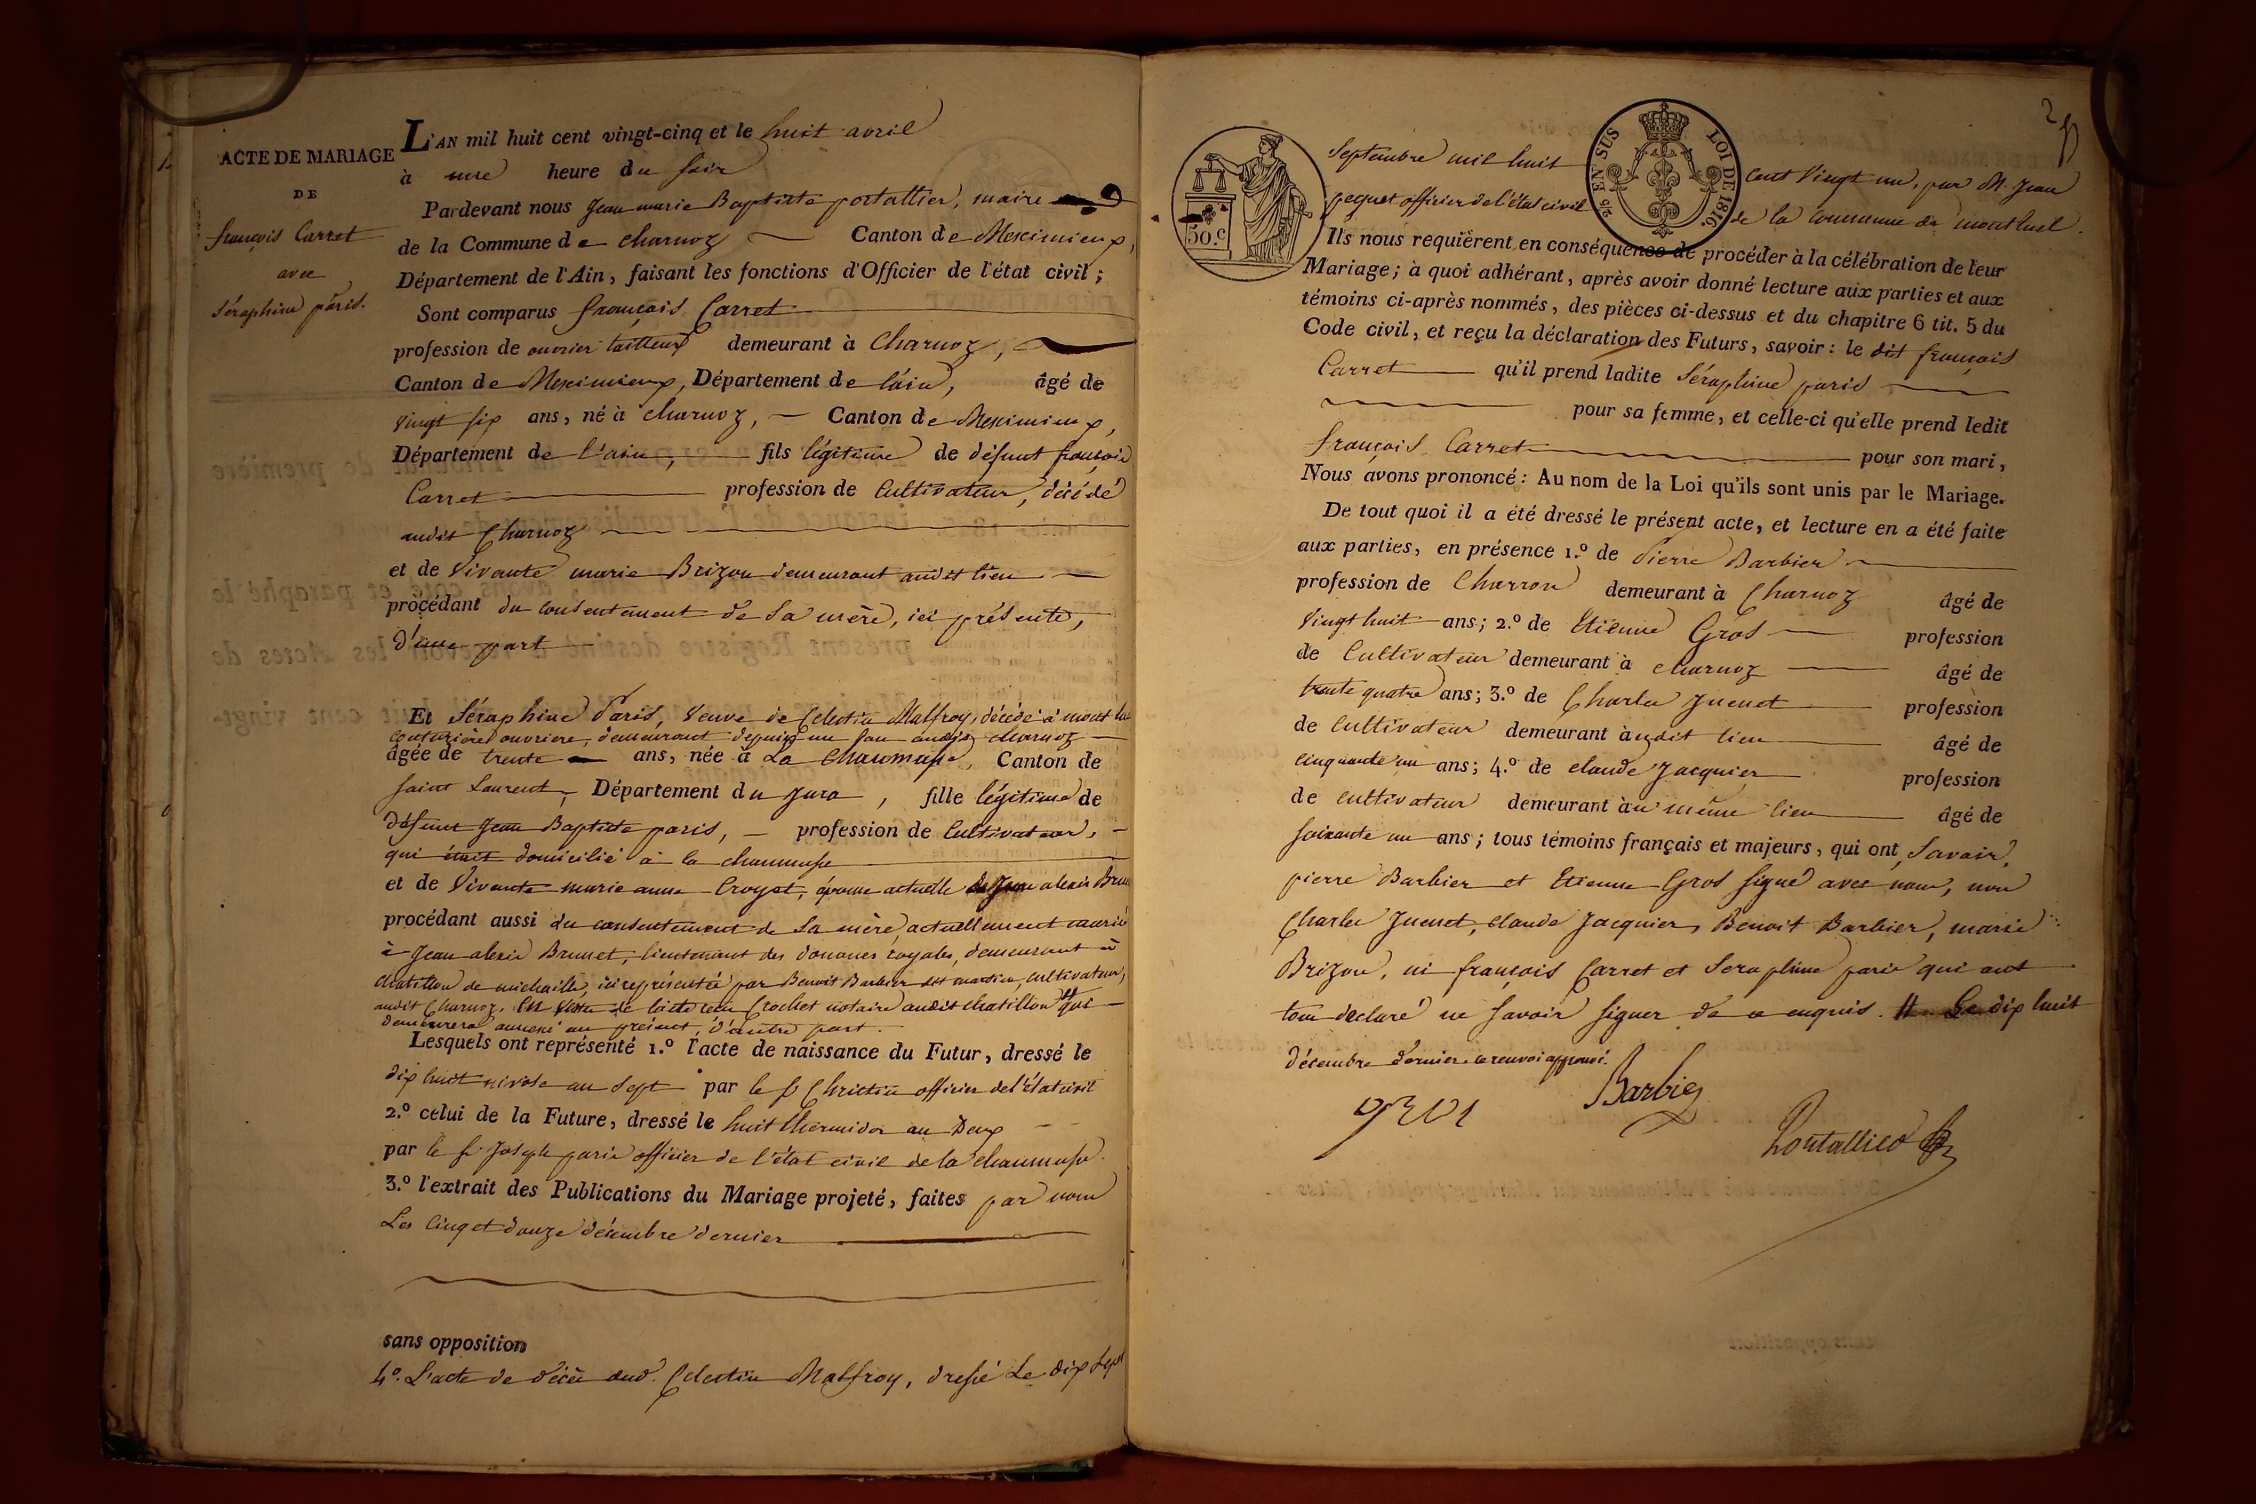 1.
ACTE DE MARIAGE
DE
françois Carret
avec
Séraphine pâris.
L'AN mil huit cent vingt-cinq et le huit avril
à une heure du soir
Pardevant nous Jean marie Baptiste portallier, maire
de la Commune de charnoz Canton de Meximieux,
Département de l'Ain, faisant les fonctions d'Officier de l'état civil;
Sont comparus françois Carret
profession de ouvrier tailleur demeurant à Charnoz,
Canton de Meximieux, Département de l'ain, âgé de
vingt six ans, né à charnoz, Canton de Meximieux,
Département de l'ain, fils légitime de défunt françois
Carret profession de Cultivateur, décédé
audit Charnoz
et de Vivante marie Brizon demeurant audit lieu
procédant du consentement de sa mère, ici présente,
d'une part
Et Séraphine Pâris, veuve de Célestin Malfroy, décédé à mont luel
couturière ouvriere, demeurant depuis un an audit charnoz
âgée de trente ans, née à La Chaumusse, Canton de
saint Laurent, Département du Jura, fille légitime de
défunt Jean Baptiste paris, profession de Cultivateur,
qui était domicilié à la chaumusse
et de Vivante marie anne Croyat, épouse actuelle de Jean alexis Brun
procédant aussi du consentement de sa mère actuellement marié
à Jean alexis Brunet, lieutenant des douanes royales, demeurant à
chatillon de michaille, ici représentée par Benoit Barbier dit martin, cultivateur,
audit Charnoz, en vertu de l'acte reçu Crochet notaire audit chatillon # qui
demeurera annexé au présent, d'autre part.
Lesquels ont représenté 1.º l'acte de naissance du Futur, dressé le
dix huit nivose an sept par le s Christin officier de l'état civil
2.º celui de la Future, dressé le huit thermidor an Deux
par le sr Joseph paris officier de l'état civil de la chaumusse.
3.º l'extrait des Publications du Mariage projeté, faites par nous
Les cinq et douze décembre dernier
sans opposition
4º. L'acte de décès dud. Célestin Malfroy, dressé Le dix sept
2
50.c
2/10 EN SUS
LOI DE 1816.
Septembre mil huit cent vingt un, par M. Jean
pequet officier de l'état civil de la commune de montluel.
Ils nous requièrent en conséquence de procéder à la célébration de leur
Mariage; à quoi adhérant, après avoir donné lecture aux parties et aux
témoins ci-après nommés, des pièces ci-dessus et du chapitre 6 tit. 5 du
Code civil, et reçu la déclaration des Futurs, savoir: le dit françois
Carret qu'il prend ladite Séraphine paris
pour sa femme, et celle-ci qu'elle prend ledit
françois Carret pour son mari,
Nous avons prononcé: Au nom de la Loi qu'ils sont unis par le Mariage.
De tout quoi il a été dressé le présent acte, et lecture en a été faite
aux parties, en présence 1.º de Pierre Barbier
profession de Charron demeurant à Charnoz âgé de
vingt huit ans; 2.º de Etienne Gros profession
de Cultivateur demeurant à charnoz âgé de
trente quatre ans; 3.º de Charles Juenet profession
de cultivateur demeurant àudit lieu âgé de
cinquante un ans; 4.º de claude Jacquier profession
de cultivateur demeurant àu même lieu âgé de
soixante un ans; tous témoins français et majeurs, qui ont, Savoir,
pierre Barbier et Etienne Gros signé avec nous, non
Charles Juenet, claude Jacquier, Benoit Barbier, marie
Brizon, ni françois Carret et Seraphine paris qui ont
tous déclaré ne savoir signer de ce enquis. # Le dix huit
décembre dernier. ce renvoi approuvé.
gros
Barbier
Portallier